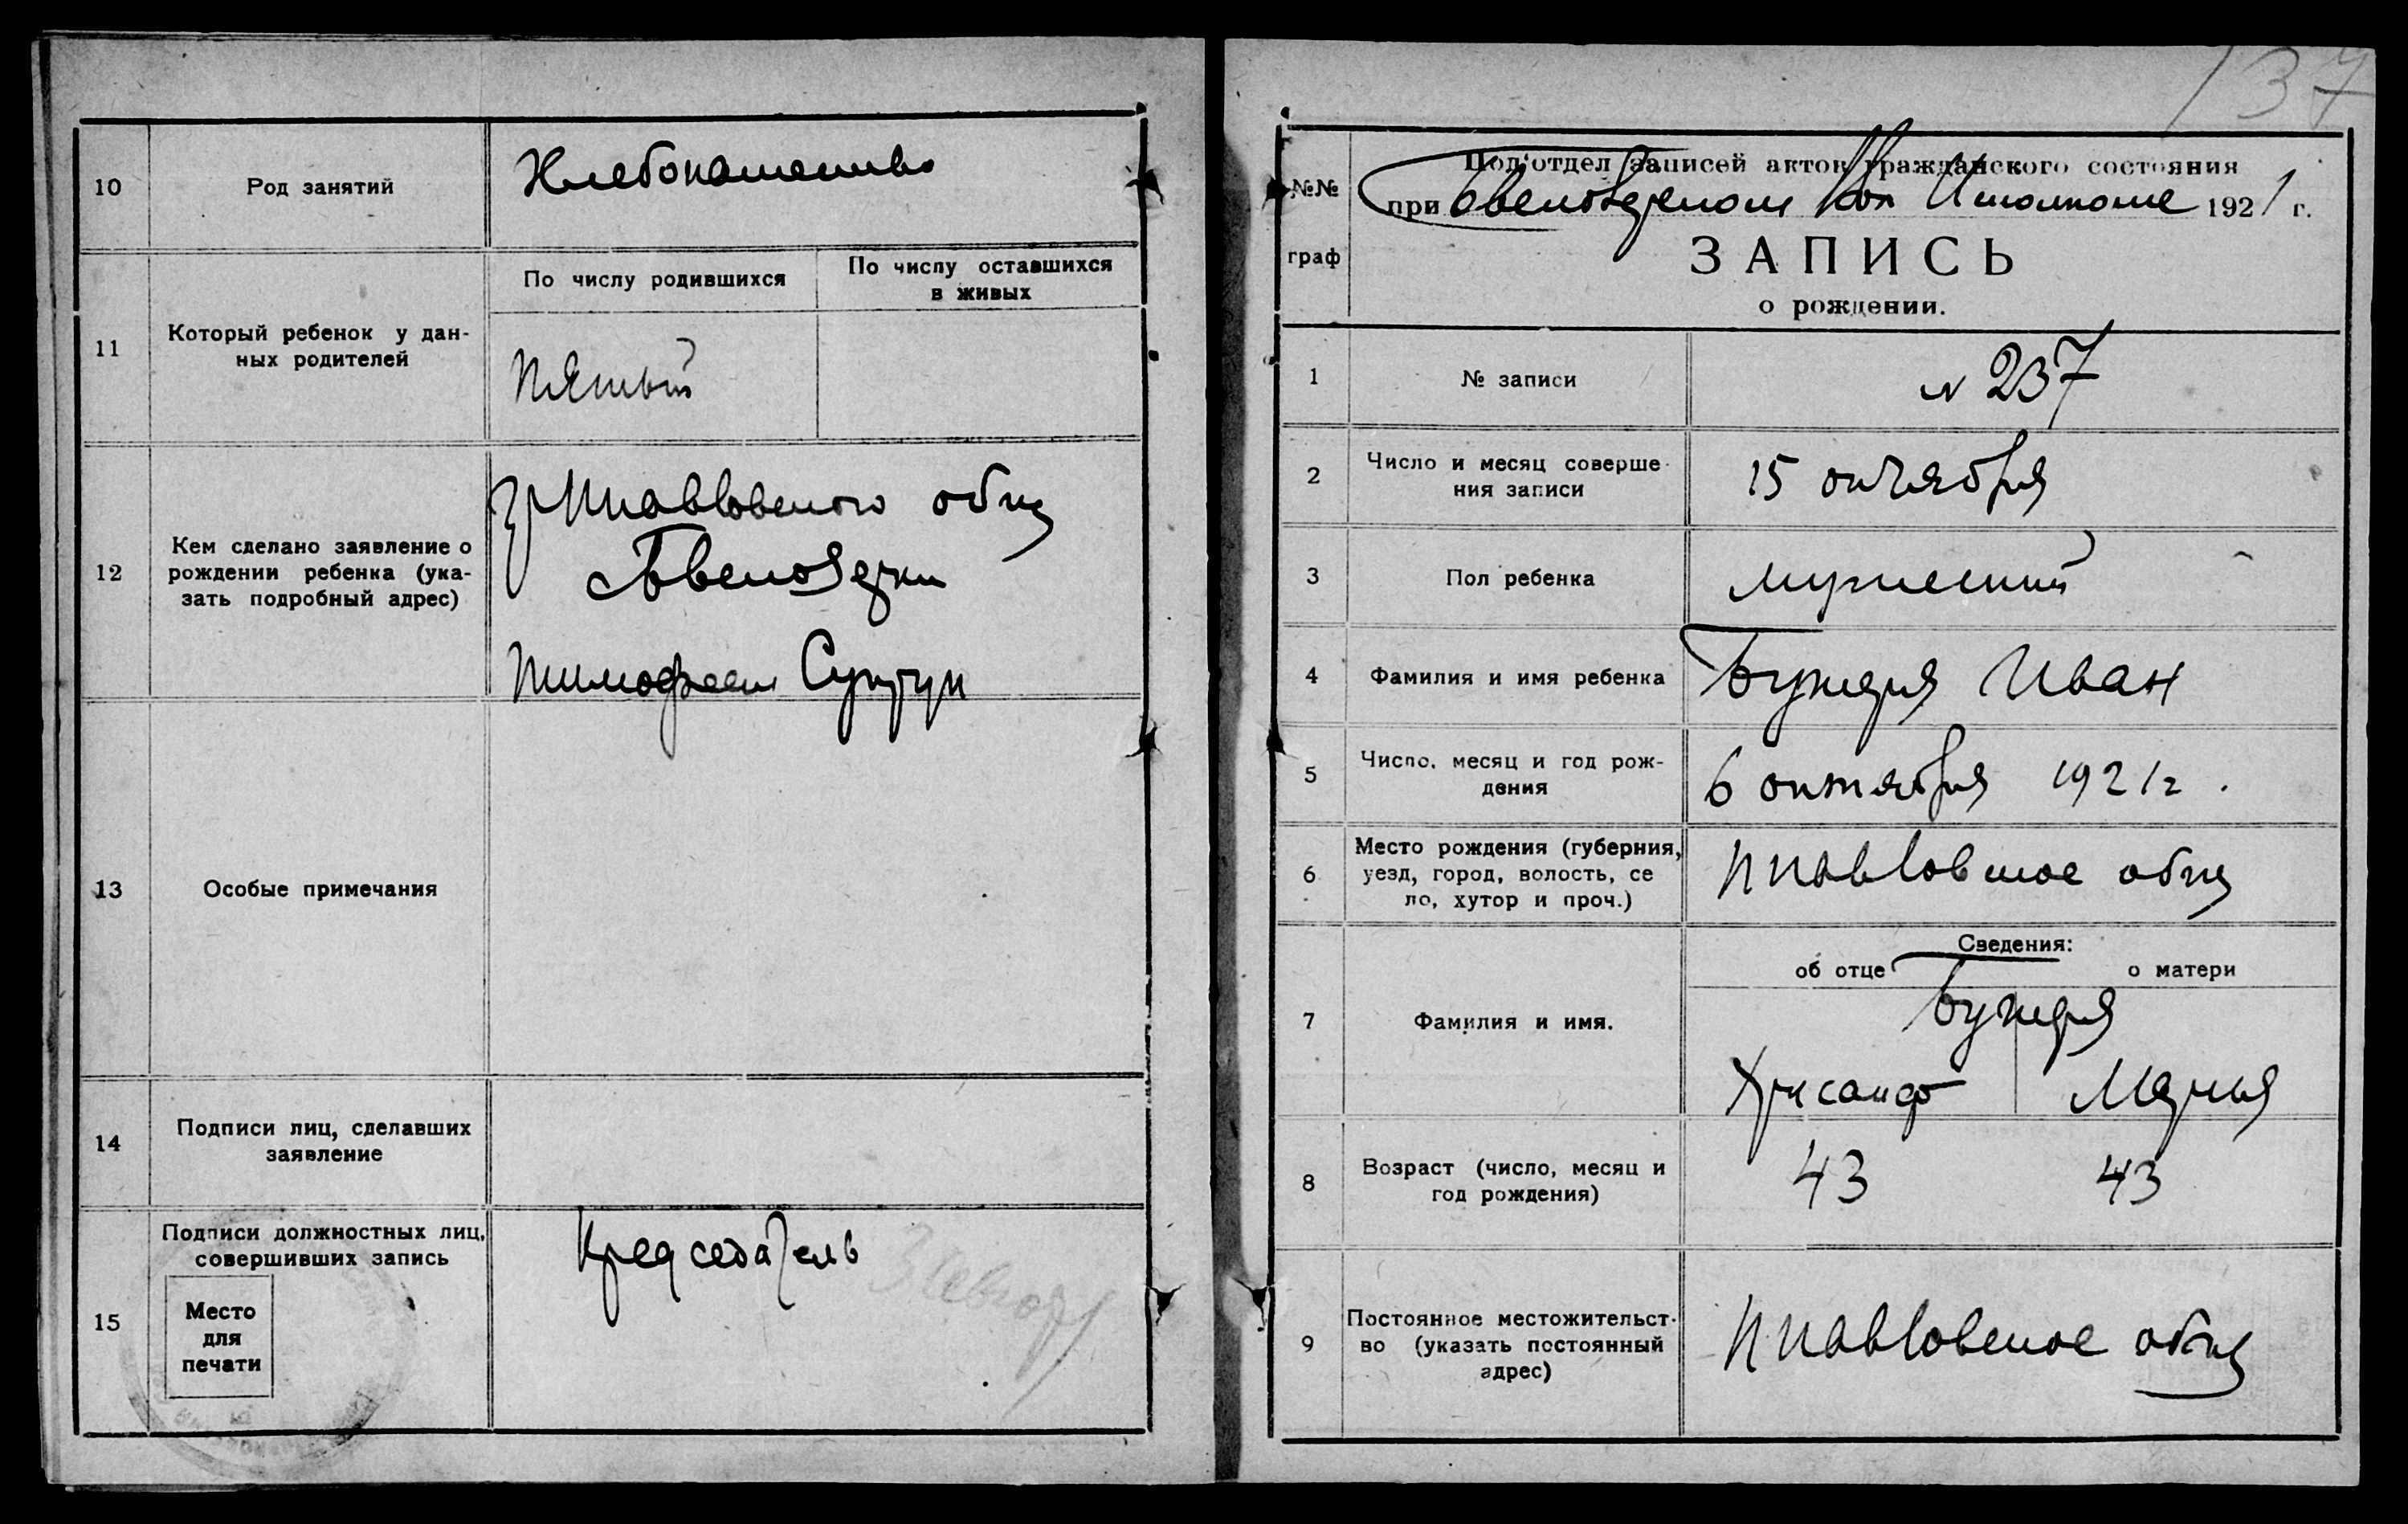 10
Род занятий
Хлебопашество
11
Который ребенок у дан-
ных родителей
По числу родившихся
По числу оставшихся
в живых
Пятый
12
Кем сделано заявление о
рождении ребенка (ука-
зать подробный адрес)
общ
Тимофеем
13
Особые примечания
14
Подписи лиц, сделавших
заявление
15
Подписи должностных лиц,
совершивших запись
Место
для
печати
Председатель
137
№№
граф
Под'отдел записей актов гражданского состояния
при Исполкоме 1921 г.
ЗАПИСЬ
о рождении.
1
№ записи
№ 237
2
Число и месяц соверше-
ния записи
15 октября
3
Пол ребенка
мужеский
4
Фамилия и имя ребенка
Иван
5
Число, месяц и год рож-
дения
6 октября 1921 г.
6
Место рождения (губерния,
уезд, город, волость, се
ло, хутор и проч.)
общ
7
Фамилия и имя.
Сведения:
об отце
о матери
Хрисанф
Мария
8
Возраст (число, месяц и
год рождения)
43
43
9
Постоянное местожительст-
во (указать постоянный
адрес)
общ